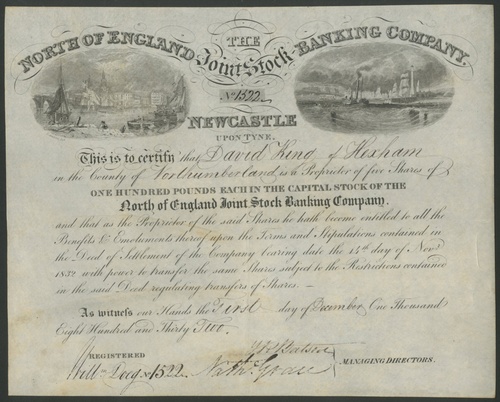 NORTH OF ENGLAND THE Joint Stock BANKING COMPANY.
No 1522
NEWCASTLE
UPON TYNE.
This is to certify that David King of Hexham
in the County of Northumberland is a Proprietor of five Shares of
ONE HUNDRED POUNDS EACH IN THE CAPITAL STOCK OF THE
North of England Joint Stock Banking Company.
and that as the Proprietor of the said Shares he hath become entitled to all the
Benefits & Emoluments thereof upon the Terms and Stipulations contained in
the Deed of Settlement of the Company bearing date the 14th day of Novr
1832 with power to transfer the same Shares subject to the Restrictions contained
in the said Deed regulating transfers of Shares.
As witness our Hands the First day of December One Thousand
Eight Hundred and Thirty Two.
REGISTERED
No 1522
MANAGING DIRECTORS.